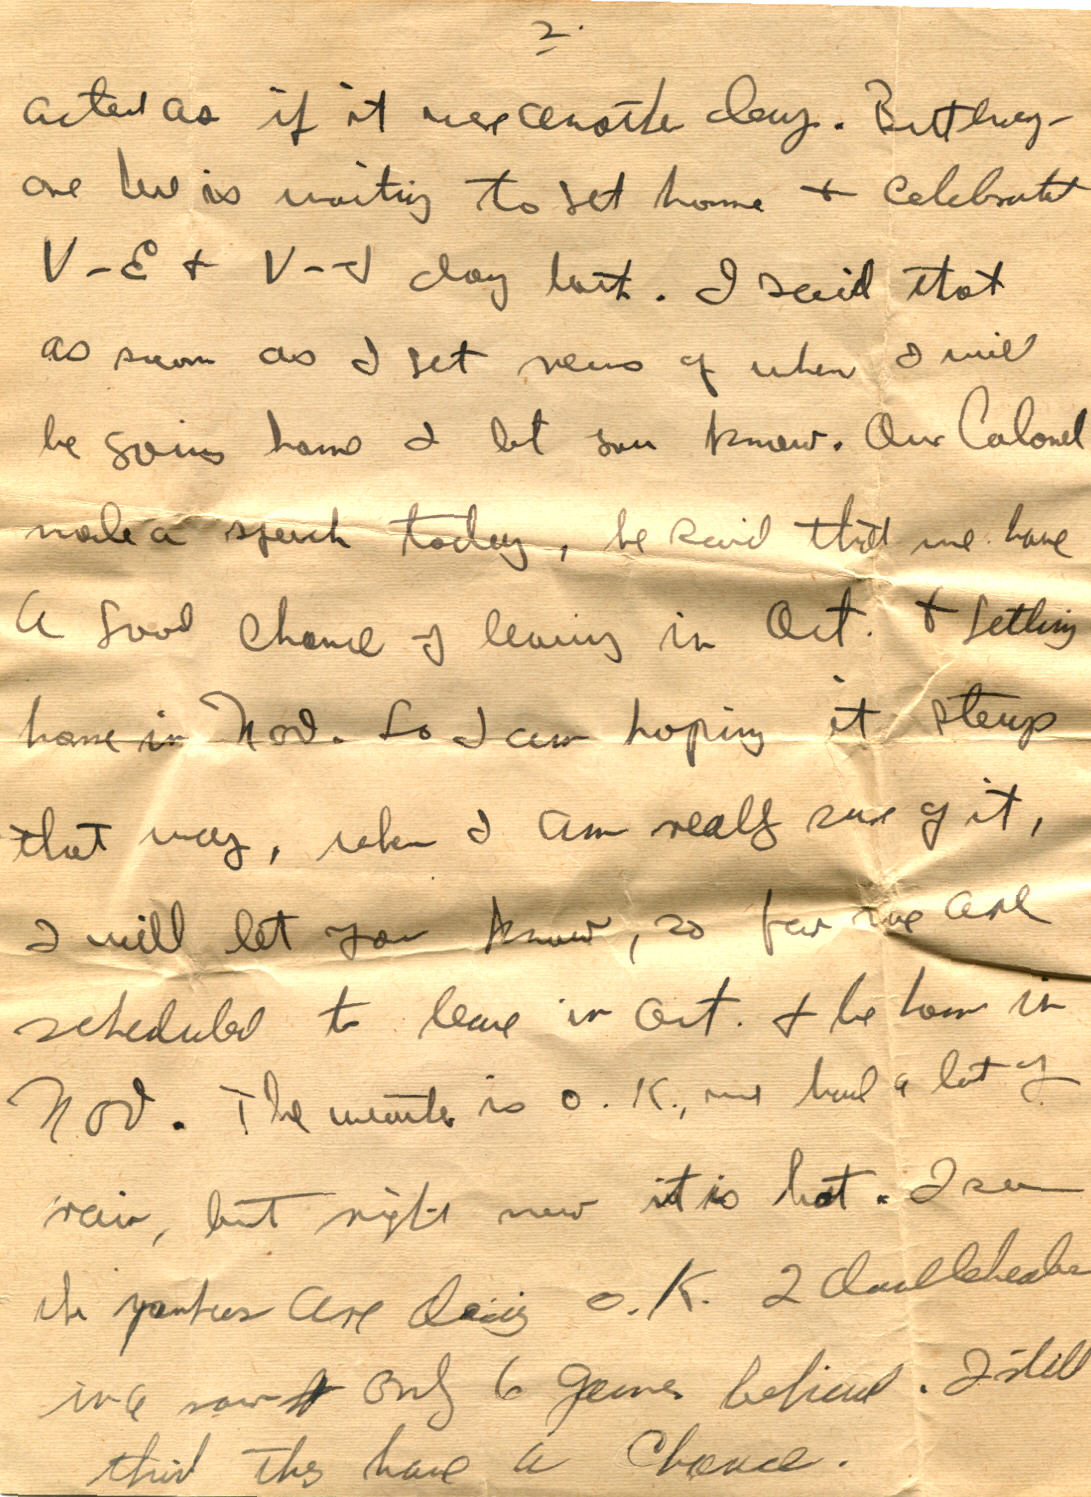 2.
acted as if it were another day. But every-
one here is waiting to get home + celebrate
V-E + V-J day both. I said that
as soon as I get news of when I will
be going home I let you know. Our Colonel
made a speech today, he said that we have
a good chance of leaving in Oct. + getting
home in Nov. So I am hoping it stays
that way, when I am really sure of it,
I will let you know, so far we are
scheduled to leave in Oct. + be home in
Nov. The weather is O.K., we had a lot of
rain, but right now it is hot. I see
the yankees are doing O.K. 2 doubleheaders
in a row + only 6 games behind. I still
think they have a chance.